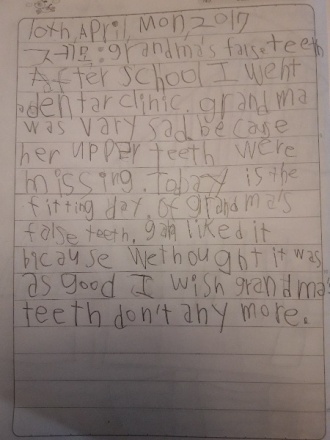 10th, April, Mon, 2017
제목: grandma's false teeth
After school I went
a dentar clinic. grandma
was vary sad be case
her upper teeth were
missing. Today is the
fitting day. of grandma's
false teeth. liked it
bicause we thought it was
as good I wish grandma's
teeth don't any more.